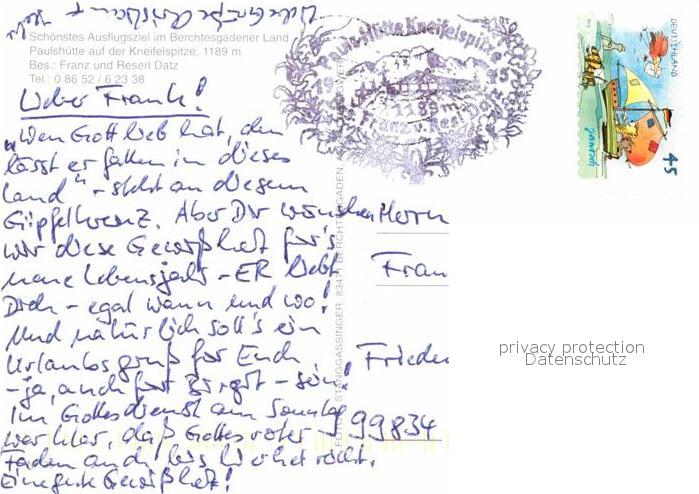 Liebe Grüße
Schönstes Ausflugsziel im Berchtesgadener Land
Paulshütte auf der Kneifelspitze, 1189 m
Bes.: Franz und Reserl Datz
Tel.: 0 86 52 / 6 23 38
Paulshütte Kneifelspitze
1189 m
Franz u. Res. Datz
DEUTSCHLAND
Janosch
45
Lieber Frank!
„Wen Gott lieb hat, den
lässt er fallen in dieses
Land" - steht an diesem
Gipfelkreuz. Aber Dir wünschen
wir diese Gewißheit für's
neue Lebensjahr - ER liebt
Dich - egal wann und wo!
Und natürlich soll's ein
Urlaubsgruß für Euch
- ja, auch für Birgit - sein!
Im Gottesdienst am Sonntag
war klar, daß Gottes roter
Faden auch bis hierher reicht.
Eine gute Gewißheit!
Herrn
Fran
Frieder
99834
FOTO STRANGGASSINGER, 83471 BERCHTESGADEN,
privacy protection
Datenschutz